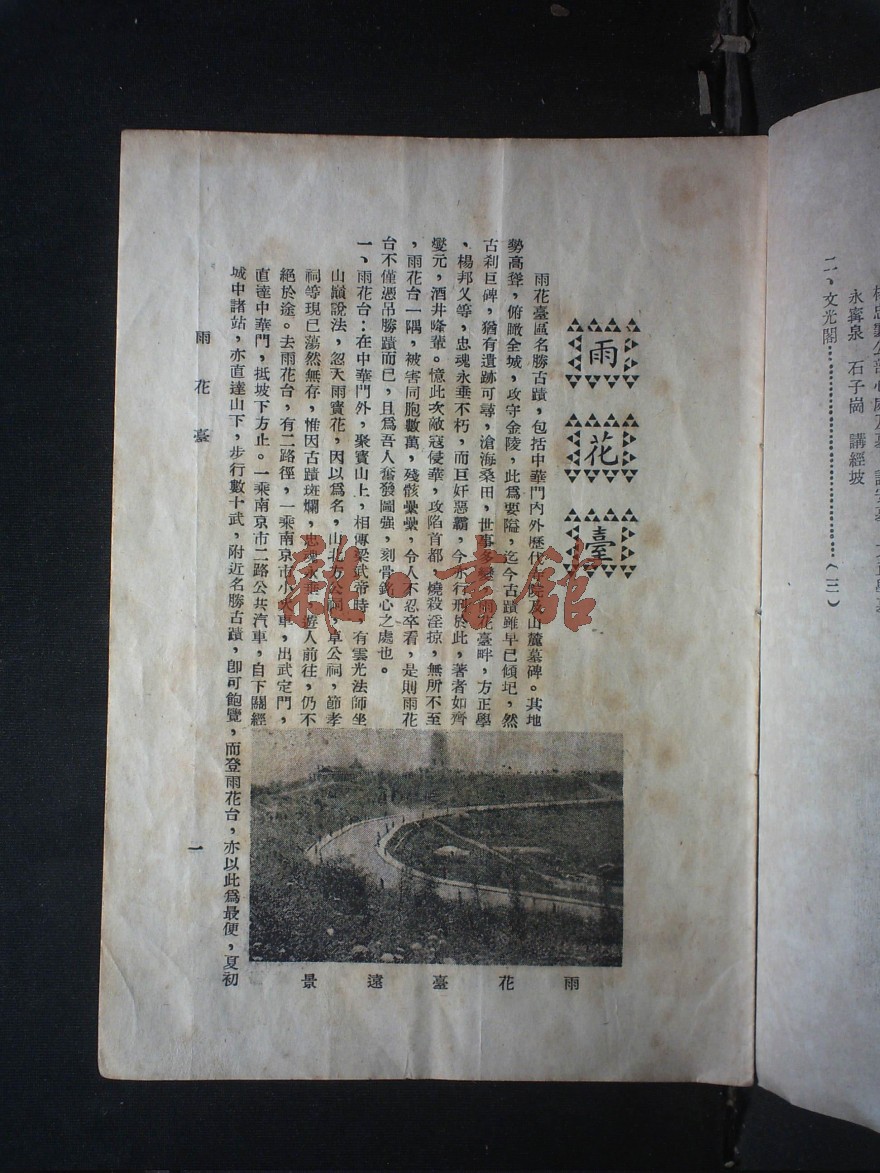 永寧泉 石子崗 講經坡
二、文光閣…………………………………(三一)
雨花臺
雨花臺區名勝古蹟,包括中華門內外歷代寺院及山麓墓碑。其地
勢高聳,俯瞰全城,攻守金陵,此為要隘,迄今古蹟雖早已傾圯,然
古刹巨碑,猶有遺跡可尋,滄海桑田,世事多變,雨花臺畔,方正學
,楊邦乂等,忠魂永垂不朽,而巨奸惡霸,今亦行刑於此,著者如齊
燮元,酒井隆輩。憶此次敵寇侵華,攻陷首都,燒殺淫掠,無所不至
,雨花台一隅,被害同胞數萬,殘骸纍纍,令人不忍卒看,是則雨花
台不僅憑吊勝蹟而已,且為吾人奮發圖強,刻骨銘心之處也。
一、雨花台:在中華門外,聚寶山上,相傳梁武帝時,有雲光法師坐
山巔說法,忽天雨寶花,因以為名,山北方公祠,卓公祠,節孝
祠等現已蕩然無存,惟因古蹟斑斕,忠魂永垂,遊人前往,仍不
絕於途。去雨花台,有二路徑,一乘南京市小火車,出武定門,
直達中華門,抵坡下方止。一乘南京市二路公共汽車,自下關經
城中諸站,亦直達山下,步行數十武,附近名勝古蹟,卽可飽覽,而登雨花台,亦以此為最便,夏初
雨花臺遠景
雨花臺
一
雜·書館